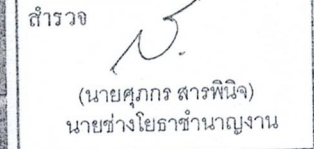 สำรวจ
(นายศุภกร สารพินิจ)
นายช่างโยธาชำนาญงาน